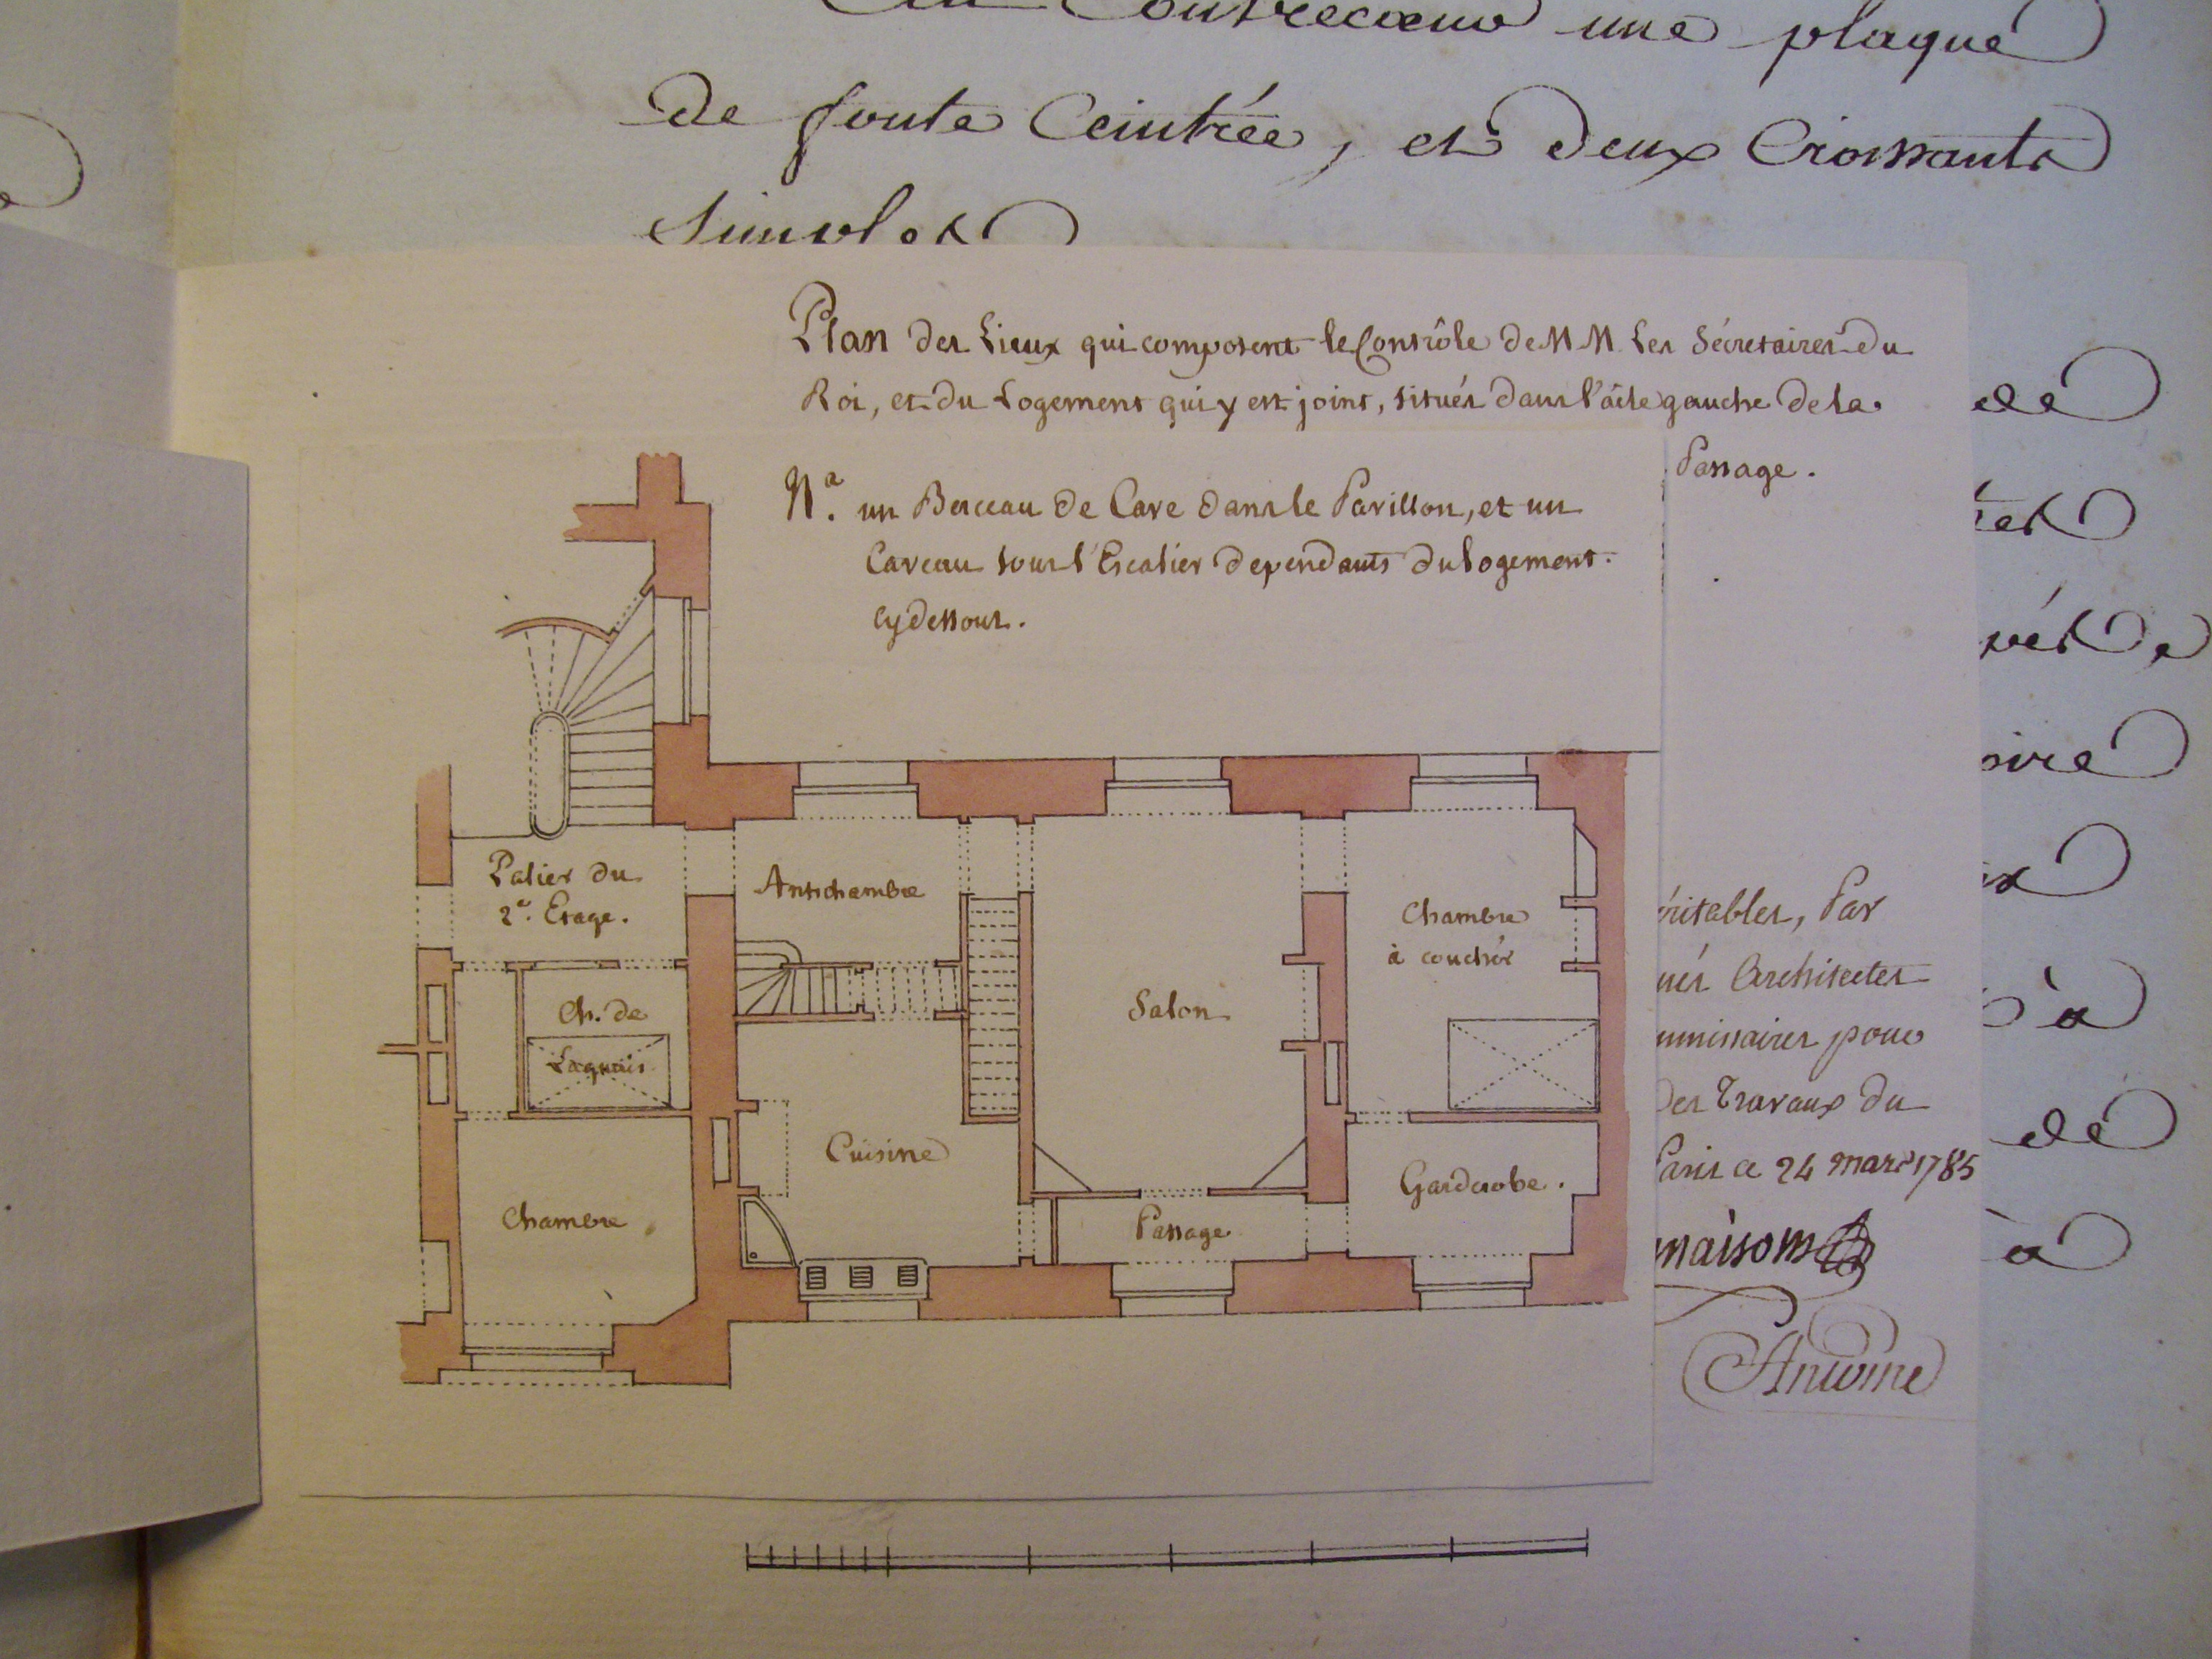 Contrecœur une plaque
de fonte Ceintrée, et deux Croissants
Simples
Plan des Lieux qui composent le Contrôle de MM. Les Sécretaires du
Roi, et du Logement qui y est joint, situés dans l'aîle gauche de la
Passage.
Na. un Berceau de Cave dans le Pavillon, et un
Caveau sous l'Escalier dependants du logement
cy dessous.
Palier du
2e. Etage.
Antichambre
Chambre
à couchér
Ch. de
Laquais
Salon
Cuisine
Chambre
Passage
Garderobe.
éritables, Par
ués Architectes
mmissaires pour
Des Travaux du
Paris ce 24 mars 1785
maisom
Antoine
de
à
de
à